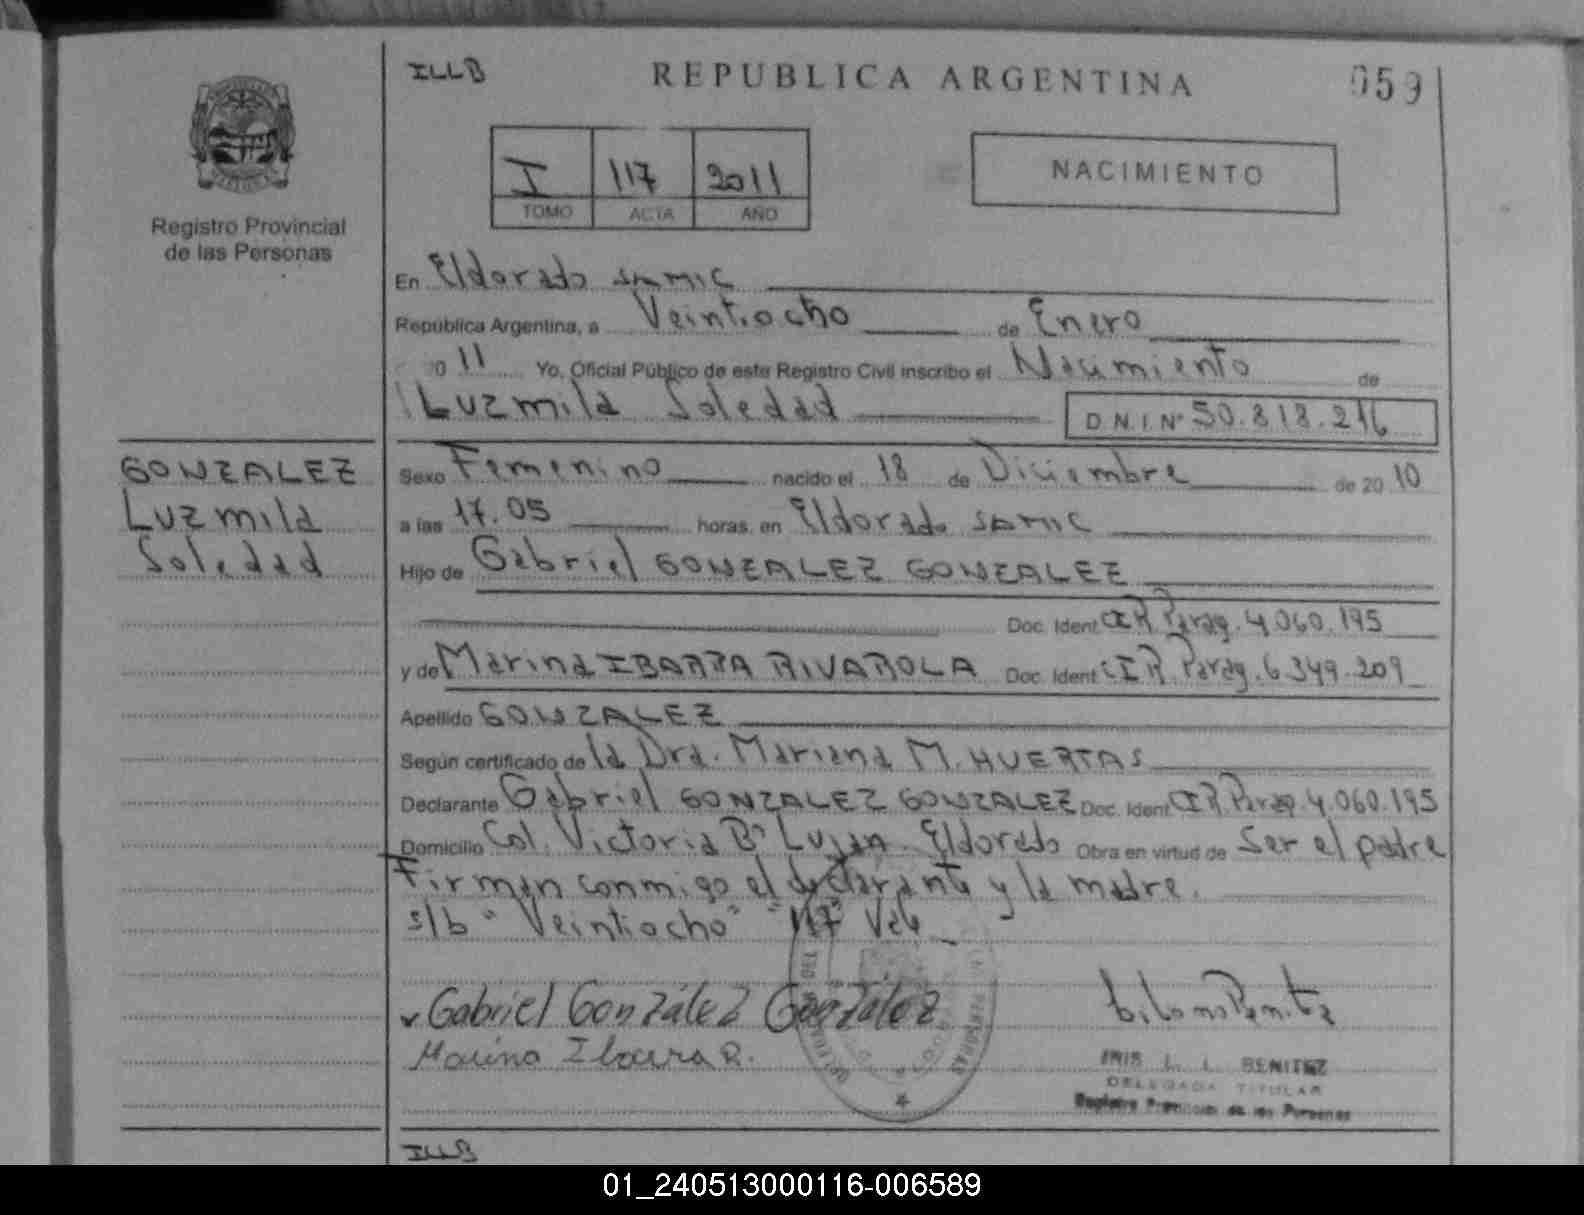 ILLB
REPUBLICA ARGENTINA
059
I 117 2011
TOMO ACTA AÑO
NACIMIENTO
Registro Provincial
de las Personas
En Eldorado SAMIC
República Argentina, a Veintiocho de Enero
11 Yo, Oficial Público de este Registro Civil inscribo el Nacimiento de
Luzmila Soledad
D.N.I. Nº 50.818.216
GONZALEZ
Luzmila
Soledad
Sexo Femenino nacido el 18 de Diciembre de 2010
a las 17.05 horas, en Eldorado SAMIC
Hijo de Gabriel GONZALEZ GONZALEZ
Doc. Ident CIR Parag. 4.060.195
y de Marina IBARRA RIVAROLA Doc. Ident CIR. Parag. 6.349.209
Apellido GONZALEZ
Según certificado de la Dra. Mariana M. HUERTAS
Declarante Gabriel GONZALEZ GONZALEZ Doc. Ident CIR Parag. 4.060.195
Domicilio Col. Victoria Bº Lujan. Eldorado Obra en virtud de Ser el padre
Firman conmigo el declarante y la madre.
s/b "Veintiocho" "117" Vale
Gabriel González González
Marina Ibarra R.
IRIS L. L. BENITEZ
DELEGADA TITULAR
Registro Provincial de las Personas
ILLB
01_240513000116-006589